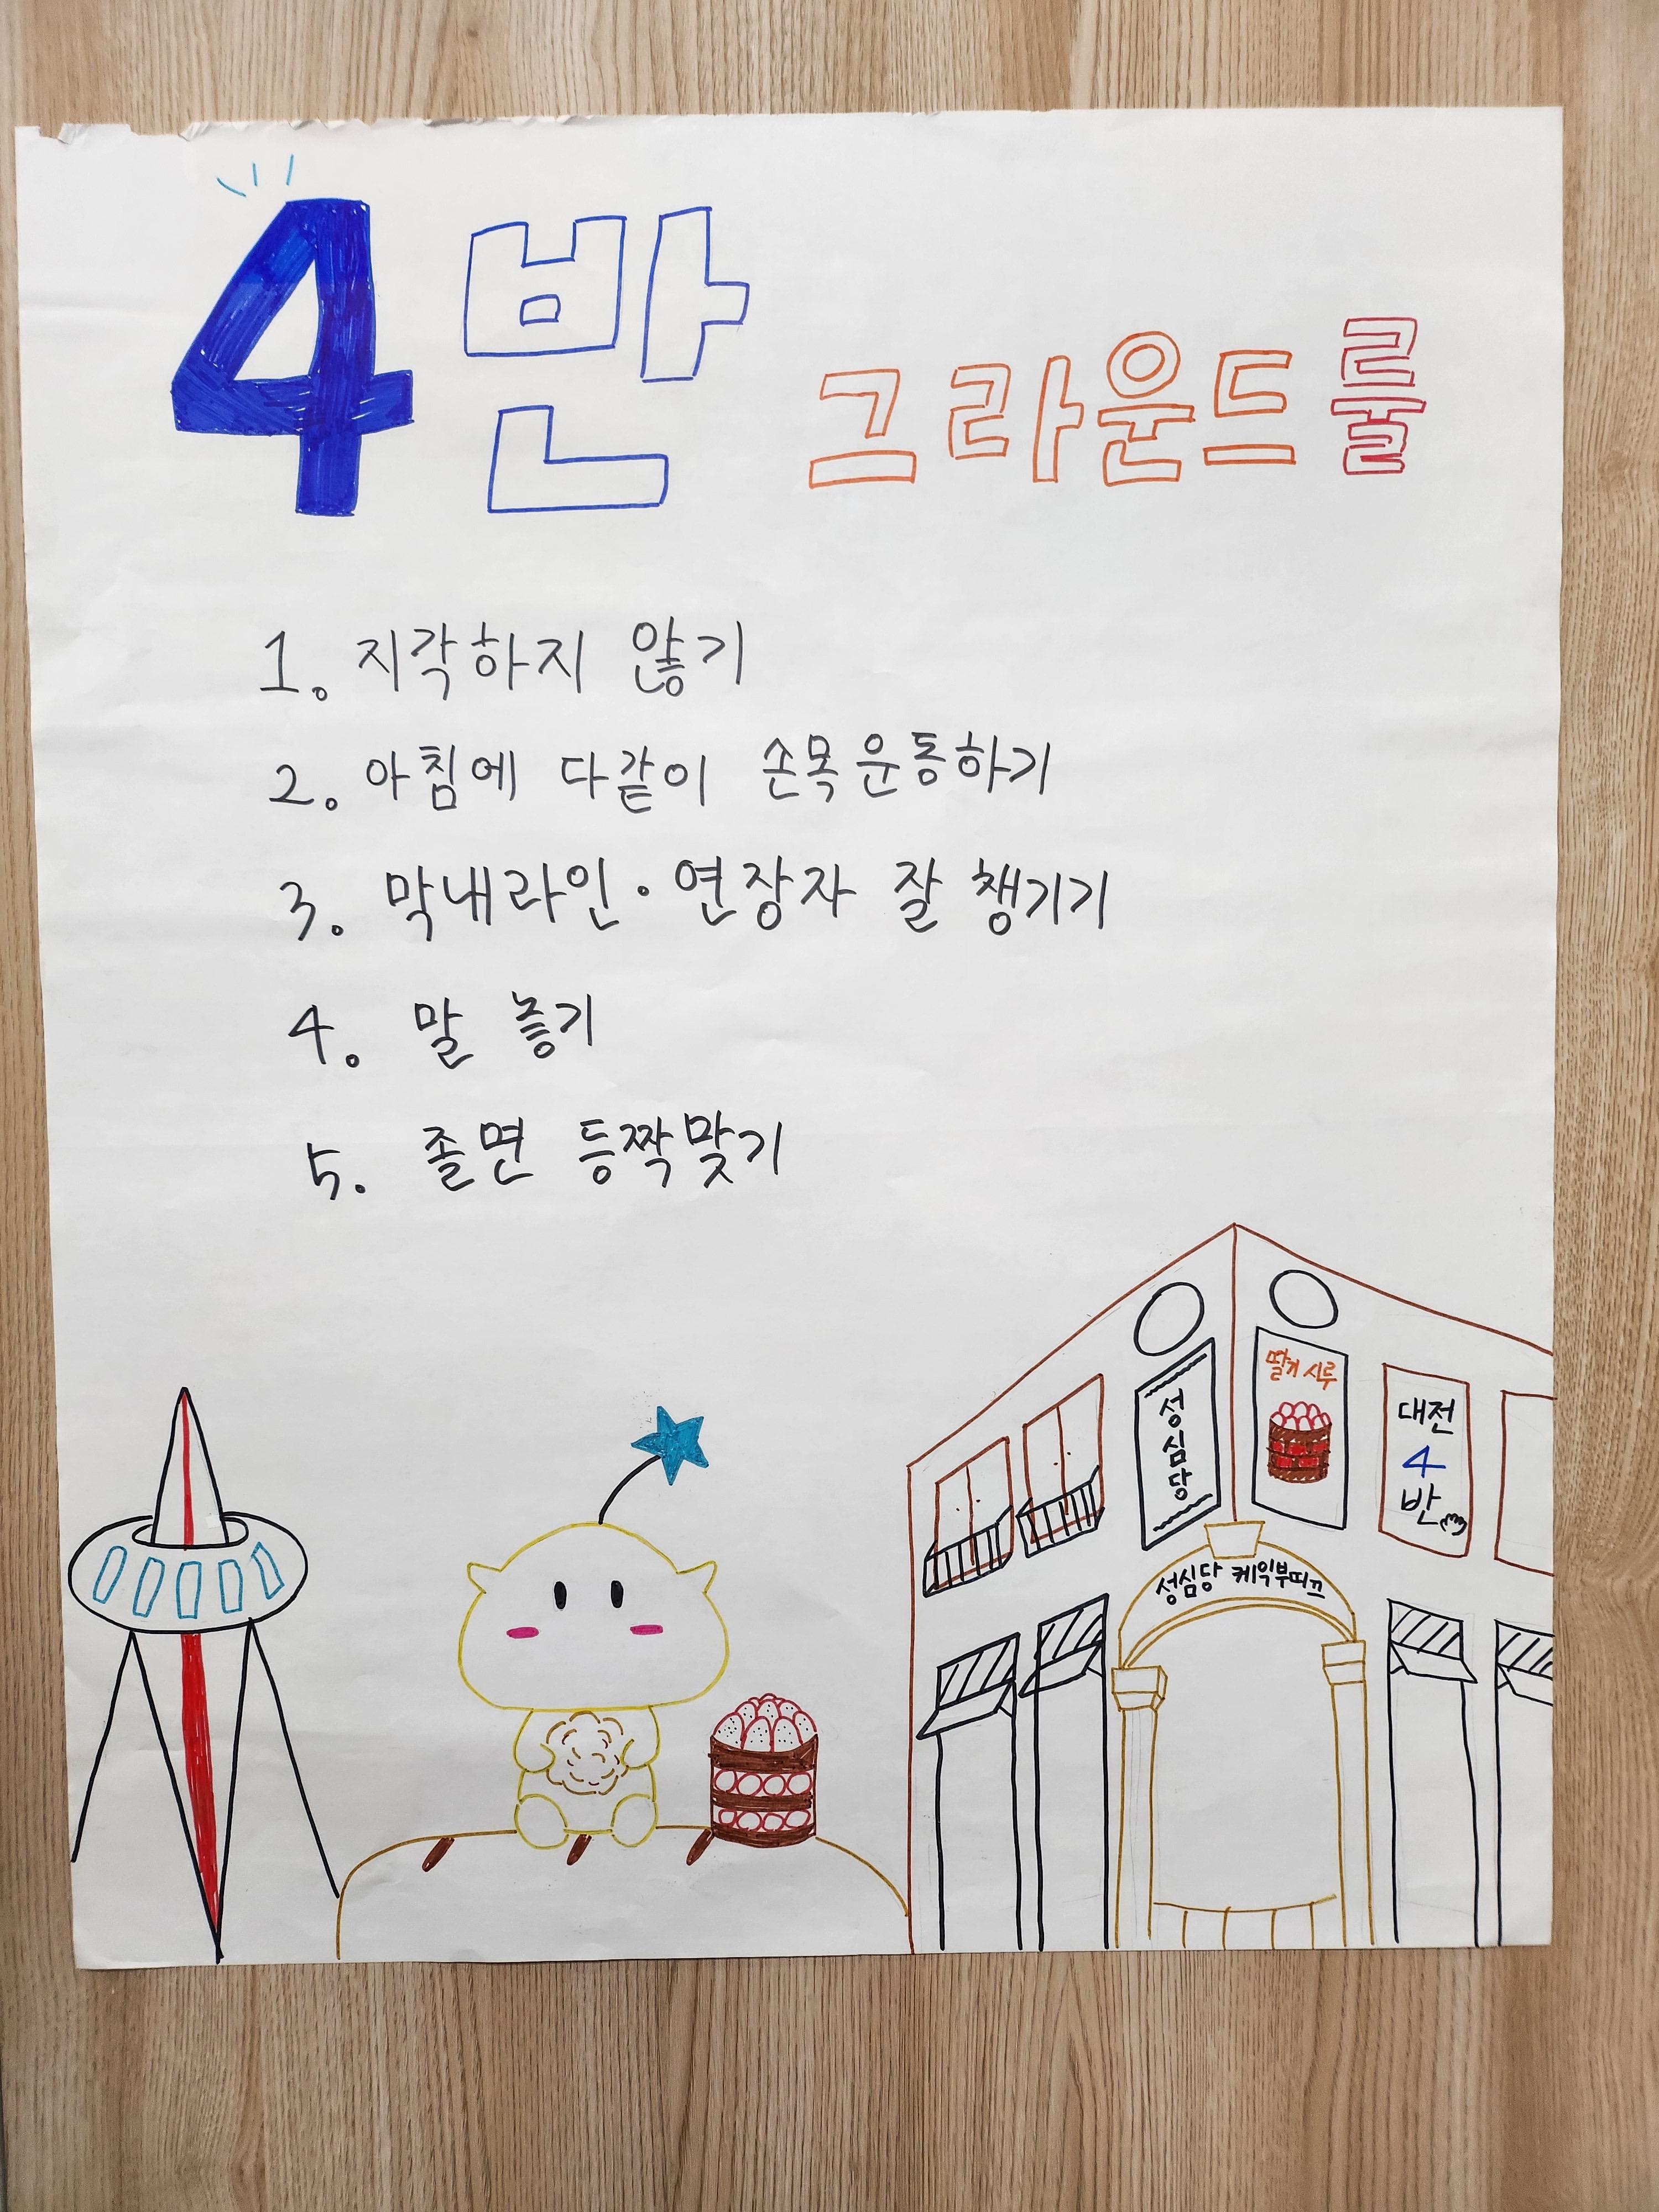 4반 그라운드룰
1. 지각하지 않기
2. 아침에 다같이 손목운동하기
3. 막내라인·연장자 잘 챙기기
4. 말 놓기
5. 졸면 등짝맞기
성심당
딸기 시루
대전
4
반
성심당 케익부띠끄